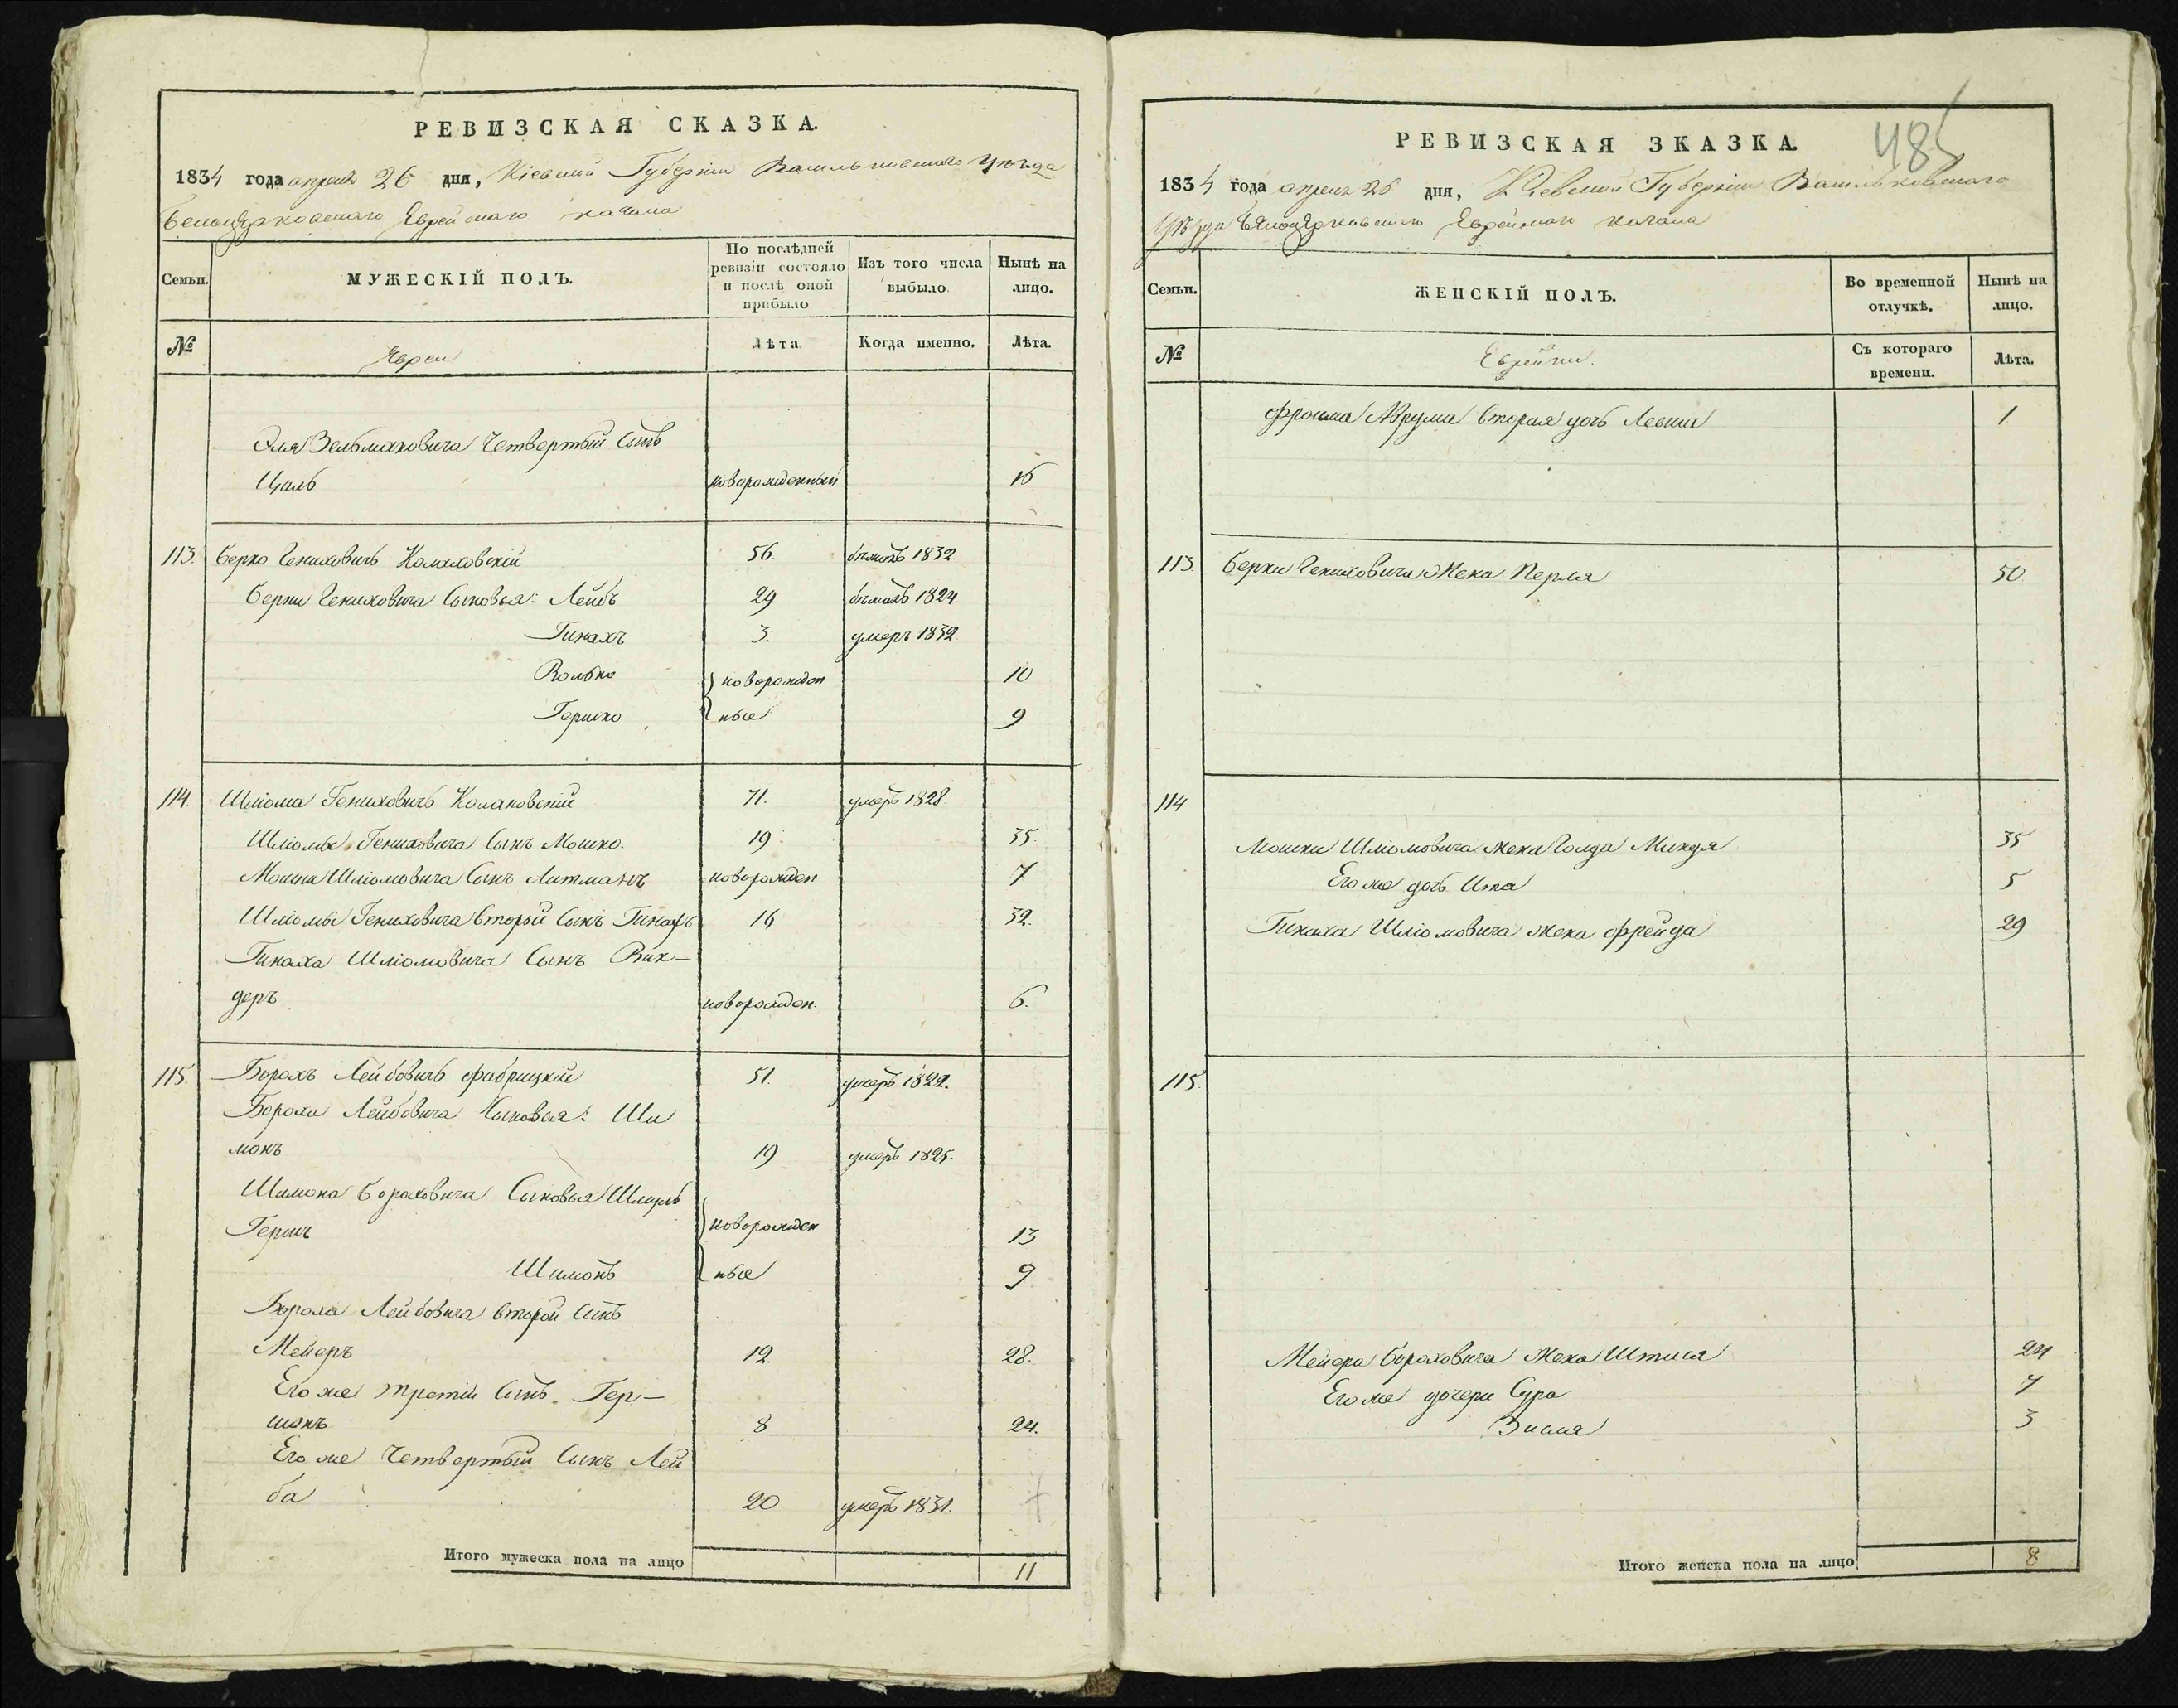 РЕВИЗСКАЯ СКАЗКА.
1834 года апреля 26 дня, Кіевской Губерніи Васильковского Уѣзда
Белоцерковского Еврейского кагала
Семьи.
МУЖЕСКІЙ ПОЛЪ.
По послѣдней ревизіи состояло и послѣ оной прибыло
Изъ того числа выбыло.
Нынѣ на лицо.
№
Евреи
Лѣта
Когда именно.
Лѣта.
Эля Зельмановича Четвертый Сынъ
Цаль новорожденный 15
113. Берко Гениховичь
56. 1832.
Берки Гениховича Сыновья: Лейбъ 29 1824.
Гинахъ 3. умеръ 1832.
Волько } новорожден 10
Гершко } ные 9
114. Шліома Гениховичь 71. умеръ 1828.
Шліомы Гениховича Сынъ Мошко. 19 35
Мошки Шліомовича Сынъ Литманъ новорожден 7
Шліомы Гениховича вторый Сынъ Гинахъ 16 32.
Гинаха Шліомовича Сынъ Вик-
деръ новорожден. 6.
115. Борохъ Лейбовичь Фабрицкій 51. умеръ 1822.
Бороха Лейбовича Сыновья: Ши
монъ 19 умеръ 1825.
Шимона Бороховича Сыновья Шмуль
Гершъ } новорожден 13
Шимонъ } ные 9
Бороха Лейбовича второй Сынъ
Мейеръ 12. 28.
Его же третій Сынъ Гер-
шонъ 8 24.
Его же Четвертый Сынъ Лей
ба 20 умеръ 1831.
Итого мужеска пола на лицо 11
485
РЕВИЗСКАЯ ЗКАЗКА.
1834 года апреля 26 дня, Кіевской Губерніи Васильковского
Уѣзда Белоцерковского Еврейского кагала
Семьи.
ЖЕНСКІЙ ПОЛЪ.
Во временной отлучкѣ.
Нынѣ на лицо.
№
Еврейки.
Съ котораго времени.
Лѣта.
Фроима вторая дочь 1
113. Берки Гениховича Жена Перля 50
114
Мошки Шліомовича жена Голда Миндя 35
Его же дочь Ита 5
Гинаха Шліомовича жена Фрейда 29
115.
Мейера Бороховича Жена 24
Его же дочери Сура 7
Зисля 3
Итого женска пола на лицо 8